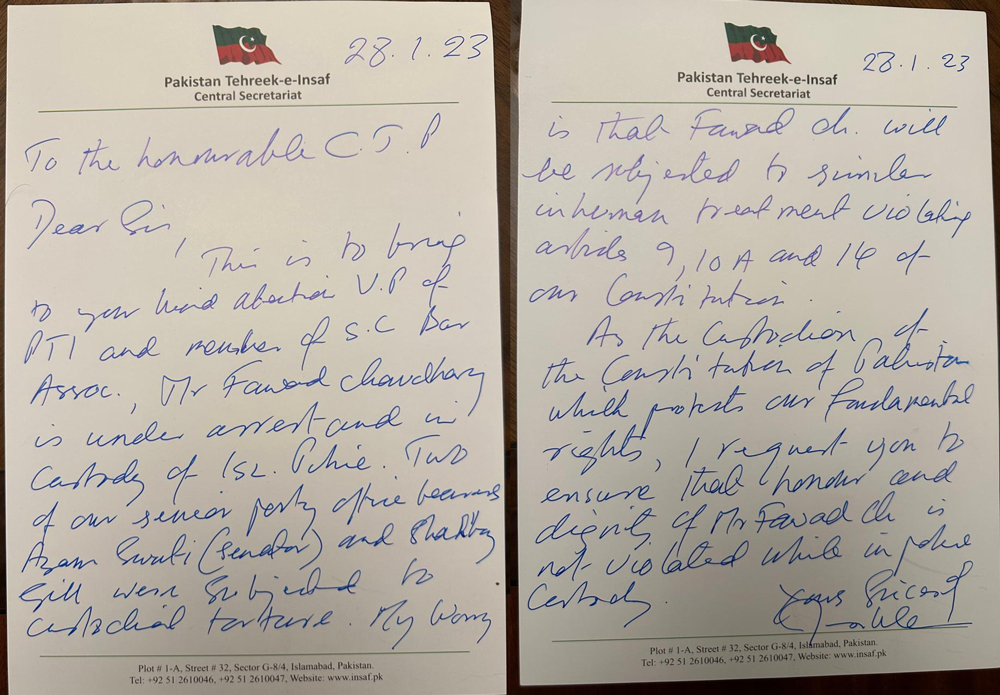 28.1.23
Pakistan Tehreek-e-Insaf
Central Secretariat
To the honourable C.J.P
Dear Sir,
This is to bring
to your kind attention V.P of
PTI and member of S.C Bar
Assoc., Mr Fawad Chaudhary
is under arrest and in
custody of Isl. Police. Two
of our senior party office bearers
Azam Swati (senator) and Shahbaz
Gill were subjected to
custodial torture. My worry
Plot # 1-A, Street # 32, Sector G-8/4, Islamabad, Pakistan.
Tel: +92 51 2610046, +92 51 2610047, Website: www.insaf.pk
28.1.23
Pakistan Tehreek-e-Insaf
Central Secretariat
is that Fawad Ch. will
be subjected to similar
inhuman treatment violating
articles 9, 10A and 14 of
our Constitution.
As the Custodian of
the Constitution of Pakistan
which protects our fundamental
rights, I request you to
ensure that honour and
dignity of Mr Fawad Ch is
not violated while in police
custody.
Yours
Plot # 1-A, Street # 32, Sector G-8/4, Islamabad, Pakistan.
Tel: +92 51 2610046, +92 51 2610047, Website: www.insaf.pk